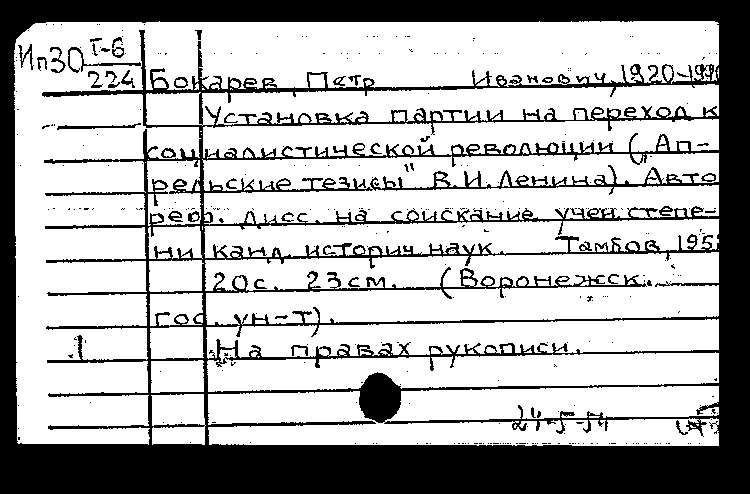 Ип30 Т-6
224 Бокарев, Петр Иванович, 1920-1990
Установка партии на переход к
социалистической революции („Ап-
рельские тезисы" В.И.Ленина). Авто
реф. дисс. на соискание учен. степе-
ни канд. историч. наук. Тамбов, 195
20с. 23см. (Воронежск.
гос. ун-т).
1 На правах рукописи.
24-5-54